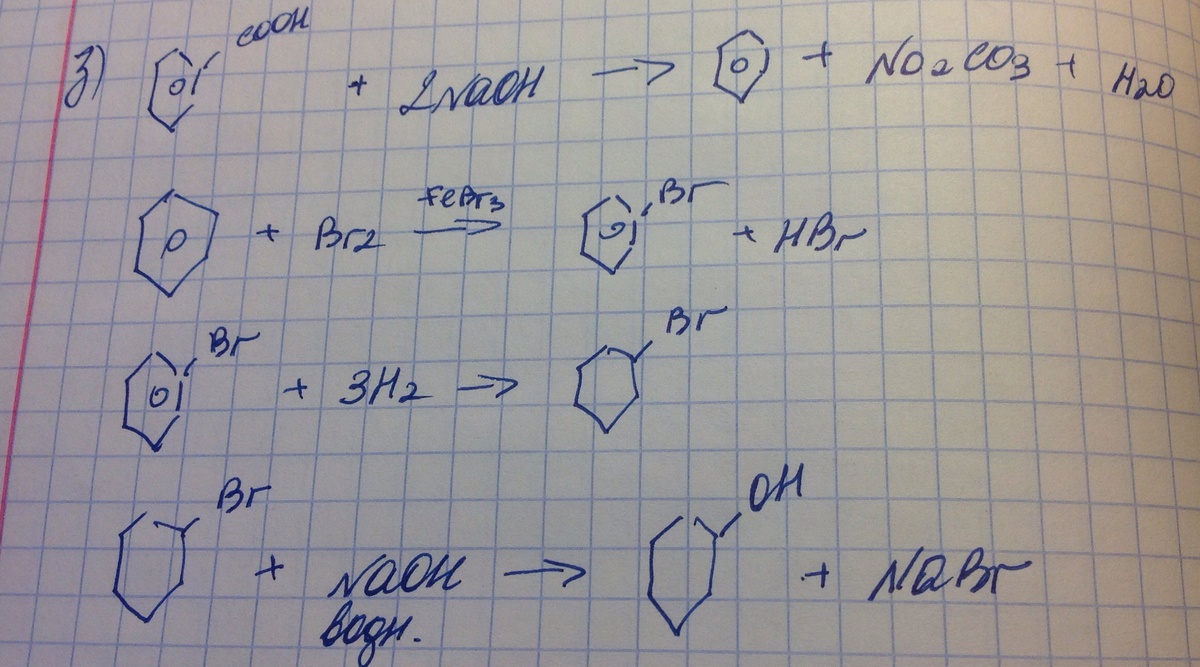 з) COOH + 2NaOH → + Na2CO3 + H2O
+ Br2 FeBr3 → Br + HBr
Br + 3H2 → Br
Br + NaOH → OH + NaBr
водн.